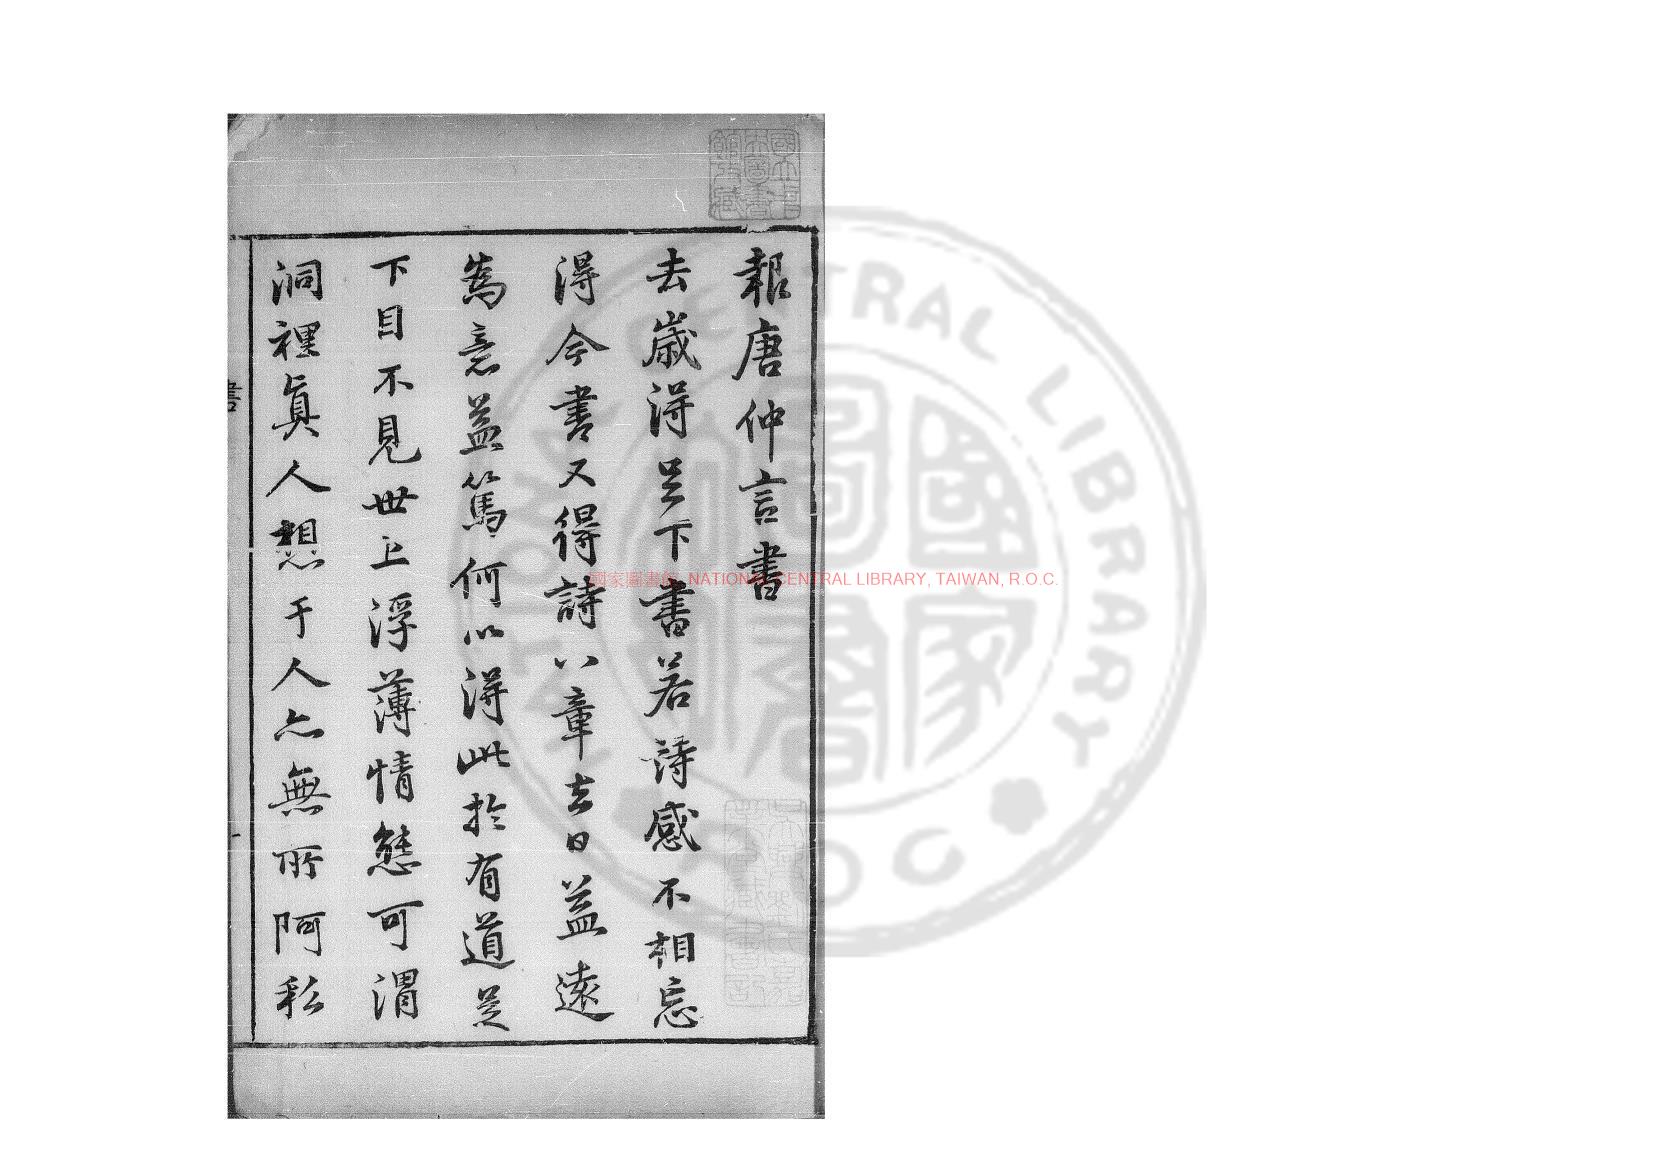 報唐仲言書
去歲淂足下書若詩感不相忘
淂今書又得詩八章去日益遠
為意益篤何以淂此於有道足
下目不見世上浮薄情態可謂
洞裡真人想于人亦無所阿私
書
國家圖書館, NATIONAL CENTRAL LIBRARY, TAIWAN, R.O.C.
NATIONAL CENTRAL LIBRARY
ROC
國家圖書